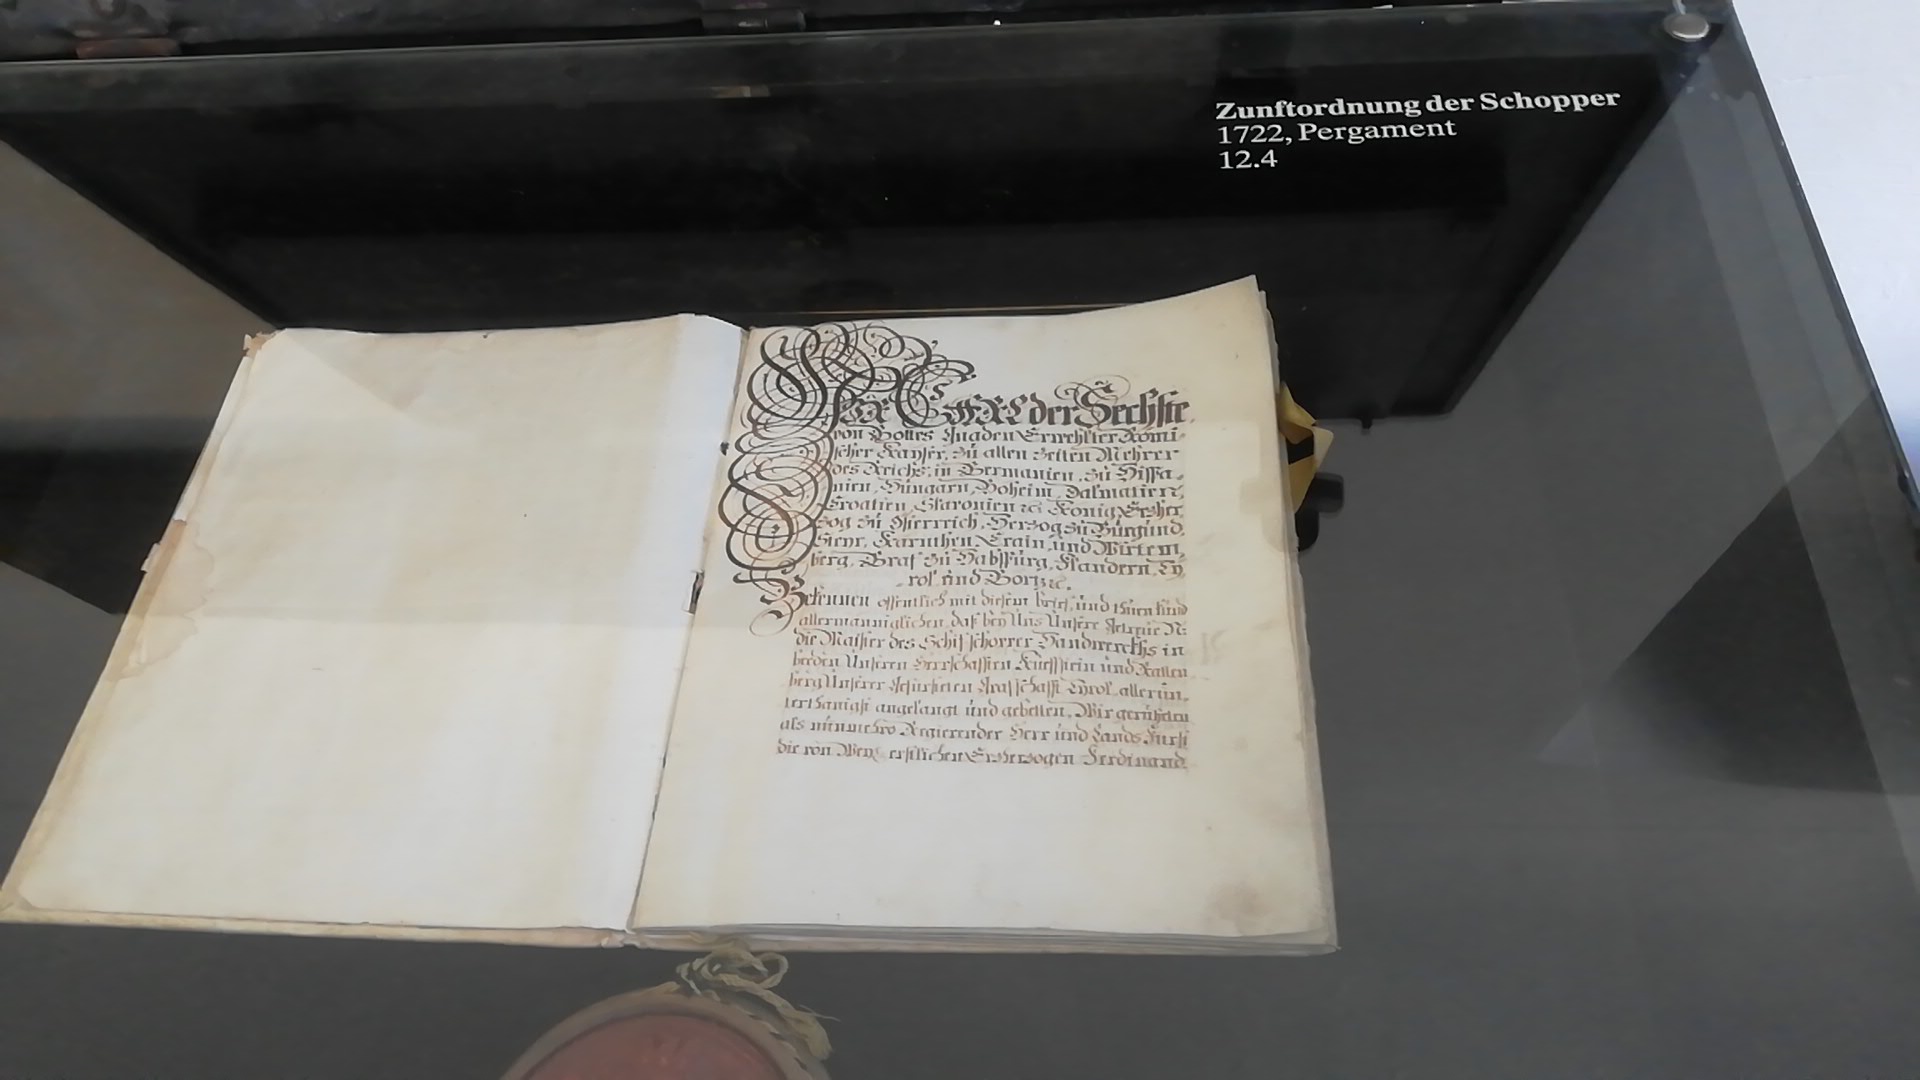 Zunftordnung der Schopper
1722, Pergament
12.4
WIR CARL der Sechste
von Gottes Gnaden Erwehlter Römi-
scher Kayser, zu allen Zeiten Mehrer
des Reichs, in Germanien, zu Hispa-
nien, Hungarn, Boheim, Dalmatien,
Croatien, Sclavonien &c König, Erzher
zog zu Österreich, Herzog zu Burgund,
Steyr, Kärnthen, Crain, und Wirtem
berg, Graf zu Habspurg, Flandern, Ty
rol, und Görz &c.
Bekennen offentlich mit diesem brief, und thuen kund
allermänniglichen, daß bey Uns Unsere getreue N:
die Maister des Schifschopper Handwerckhs in
beeden Unseren Herrschafften Kueffstein und Ratten
berg Unserer gefürsteten Grafschafft Tyrol allerun,
terthänigst angelangt und gebetten, Wir geruheten
als nunmehro Regierender Herr und Lands Fürst
die von Erzherzogen Ferdinand